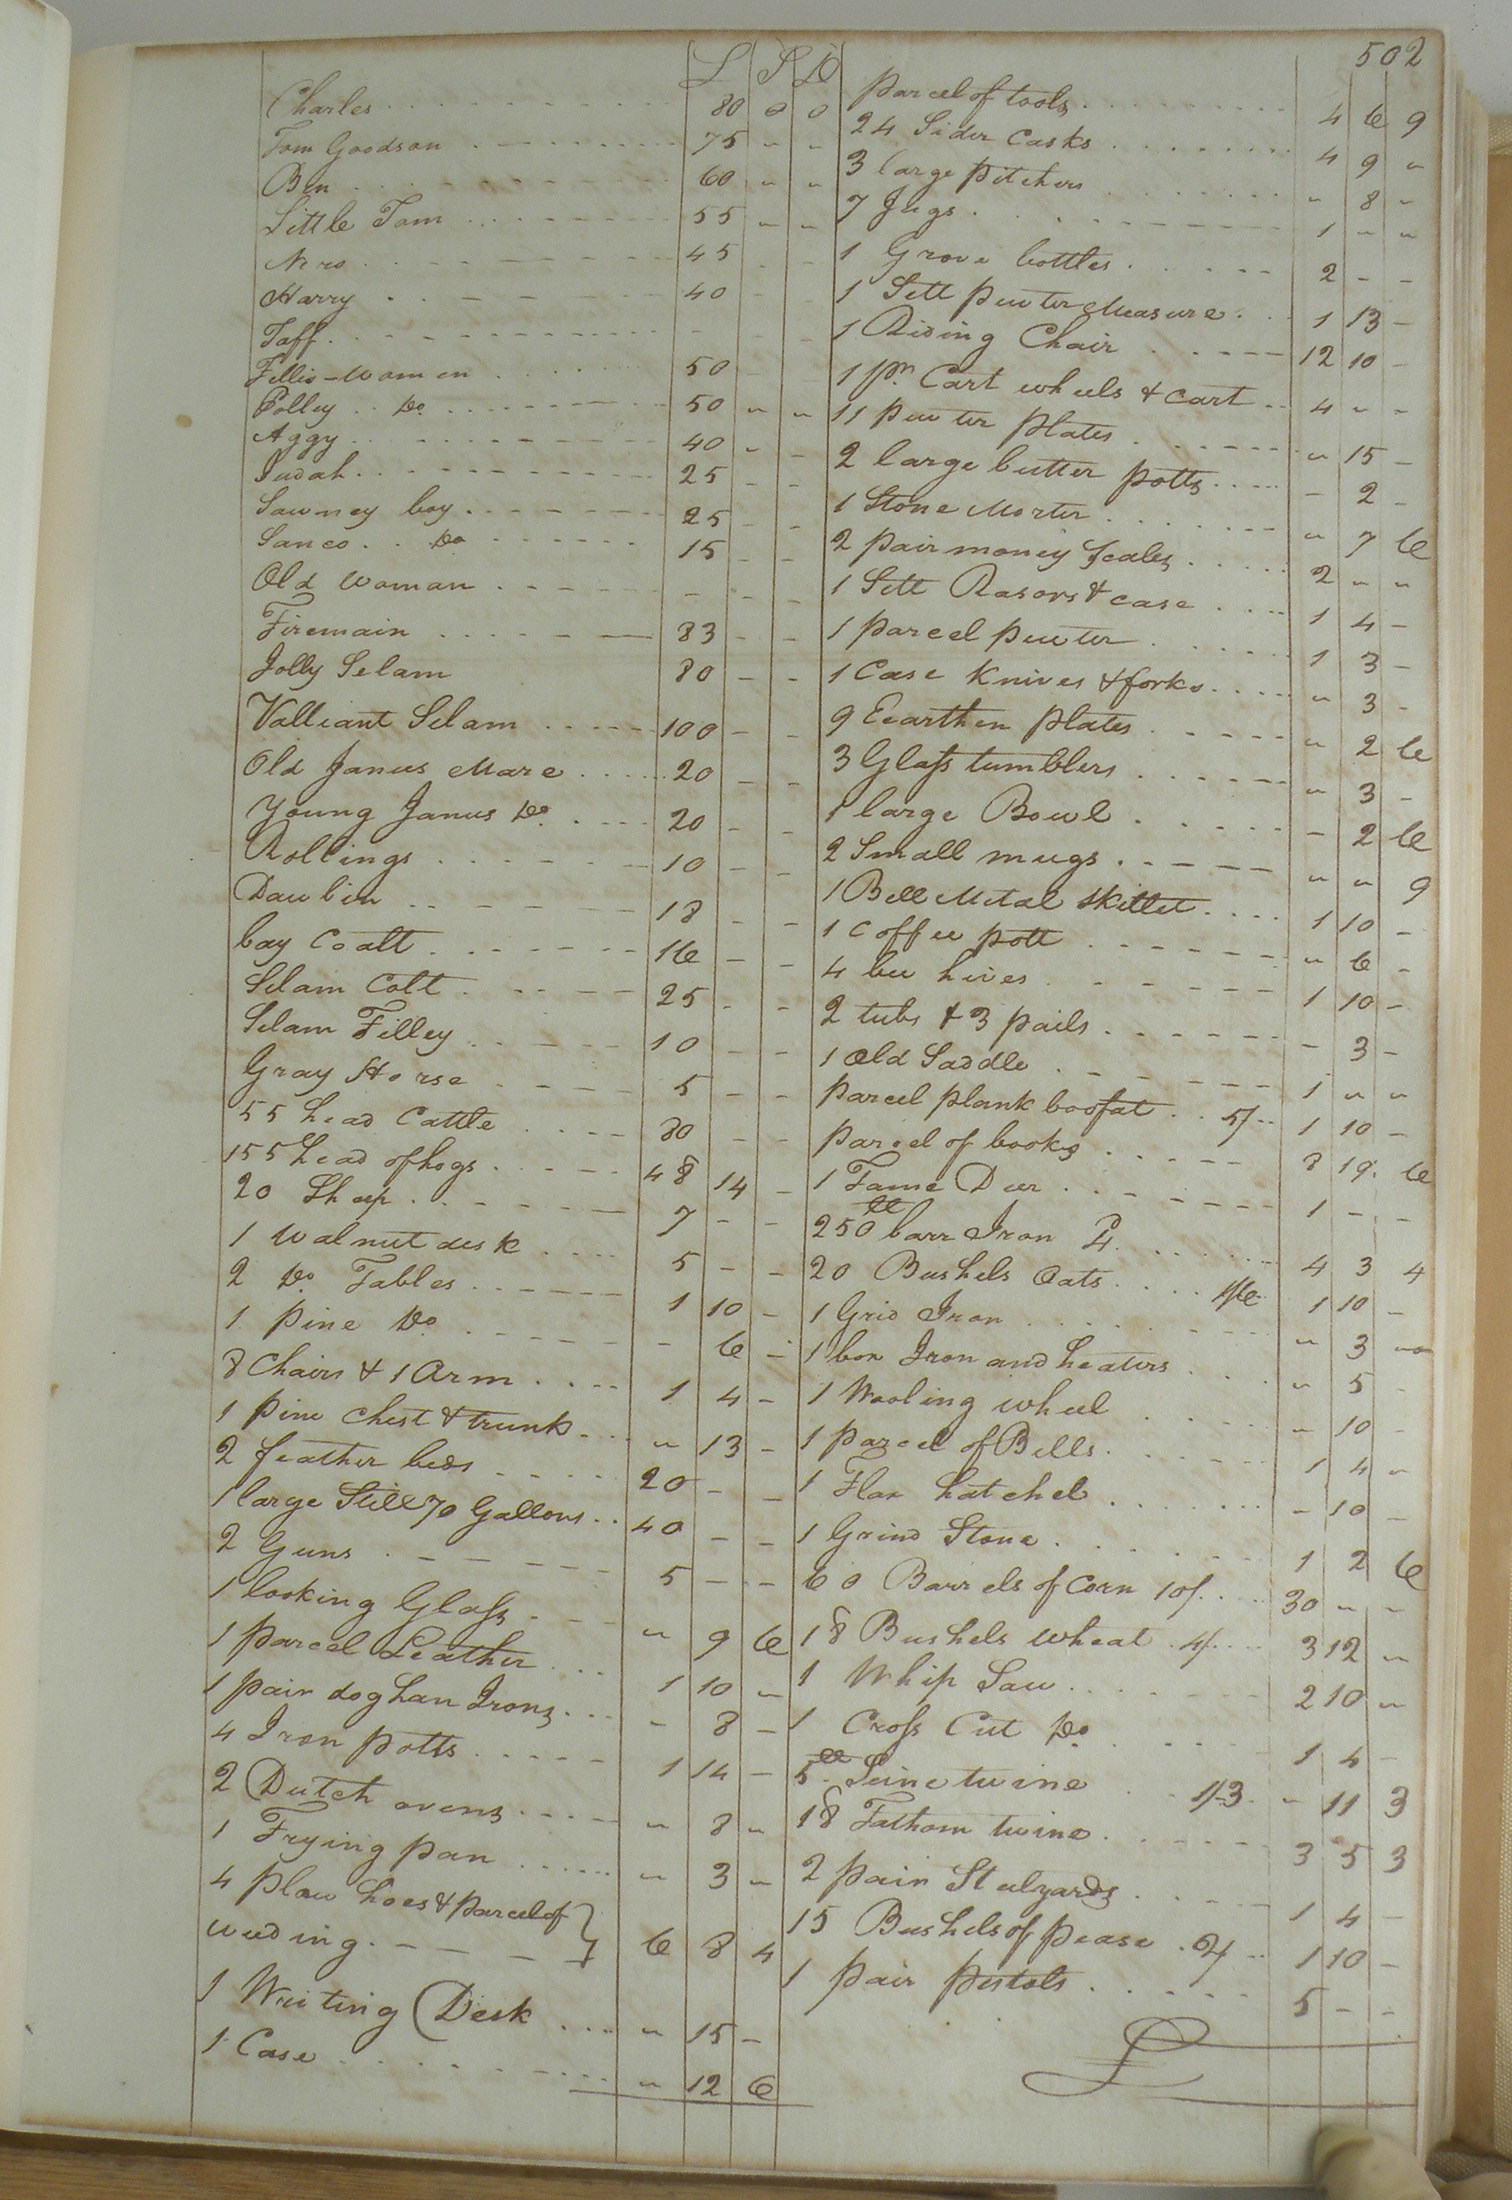 502
L S D
Charles 80 0 0
Tom Goodson 75 " "
Ben 60 " "
Little Tom 55 - -
Nero 45 - -
Harry 40 - -
Taff - - -
Fillis - Women 50 -
Polley Do 50 " "
Aggy 40 " -
Judah 25 - -
Sawney boy 25 - -
Sanco Do 15 - -
Old Woman - - -
Firemain 83 - -
Jolly Selam 80 - -
Valleant Selam 100 - -
Old Janus Mare 20 - -
Young Janus Do 20 - -
Rollings 10 - -
Dawbin 18 - -
bay Coalt 16 - -
Selam Colt 25 - -
Selam Filley 10 - -
Gray Horse 5 - -
55 head Cattle 80 - -
155 head of hogs 48 14 -
20 Sheep 7 - -
1 Walnut desk 5 - -
2 Do Tables 1 10 -
1 Pine Do - 6 -
8 Chairs & 1 Arm 1 4 -
1 Pine Chest & trunk " 13 -
2 feather beds 20 - -
1 large Still 70 Gallons 40 - -
2 Guns 5 - -
1 looking Glass " 9 6
1 Parcel Leather 1 10 "
1 pair dog han Irons - 8 -
4 Iron Potts 1 14 -
2 Dutch ovens " 8 "
1 Frying Pan " 3 "
4 Plow hoes & Parcel of
weeding 6 8 4
1 Writing Desk " 15 -
1 Case " 12 6
Parcel of tools 4 6 9
24 Sider Casks 4 9 "
3 large Pitchers " 8 "
7 Jugs 1 " "
1 Grove bottles 2 - -
1 Sett Pewter Measure 1 13 -
1 Riding Chair 12 10 -
1 Pr. Cart wheels & cart 4 " -
11 Pewter Plates " 15 -
2 large butter Potts - 2 -
1 Stone Morter " 7 6
2 pair money Scales 2 " "
1 Sett Rasors & case 1 4 -
1 Parcel Pewter 1 3 -
1 Case Knives & forks " 3 -
9 Eearthen Plates " 2 6
3 Glass tumblers " 3 -
1 large Bowl - 2 6
2 Small mugs " " 9
1 Bell Metal Skillet 1 10 -
1 Coffee Pott " 6 -
4 bee hives 1 10 -
2 tubs & 3 pails - 3 -
1 Old Saddle 1 " "
Parcel Plank boofat 5/ 1 10 -
Parcel of books 8 19 6
1 Tame Deer 1 - -
250 ll barr Iron 4 4 3 4
20 Bushels Oats 1/6 1 10 -
1 Grid Iron " 3 "
1 box Iron and heaters " 5 -
1 Wooling wheel " 10 -
1 Parcel of Bells 1 4 "
1 Flax hatchel - 10 -
1 Grind Stone 1 2 6
60 Barrels of Corn 10/ 30 " -
18 Bushels wheat 4/ 3 12 "
1 Whip Saw 2 10 "
1 Cross Cut Do 1 4 -
5 ll Seine twine 1/3 " 11 3
18 Fathom twine 3 5 3
2 Pair Stulyards 1 4 -
15 Bushels of Pease 2/ 1 10 -
1 Pair Pistols 5 - -